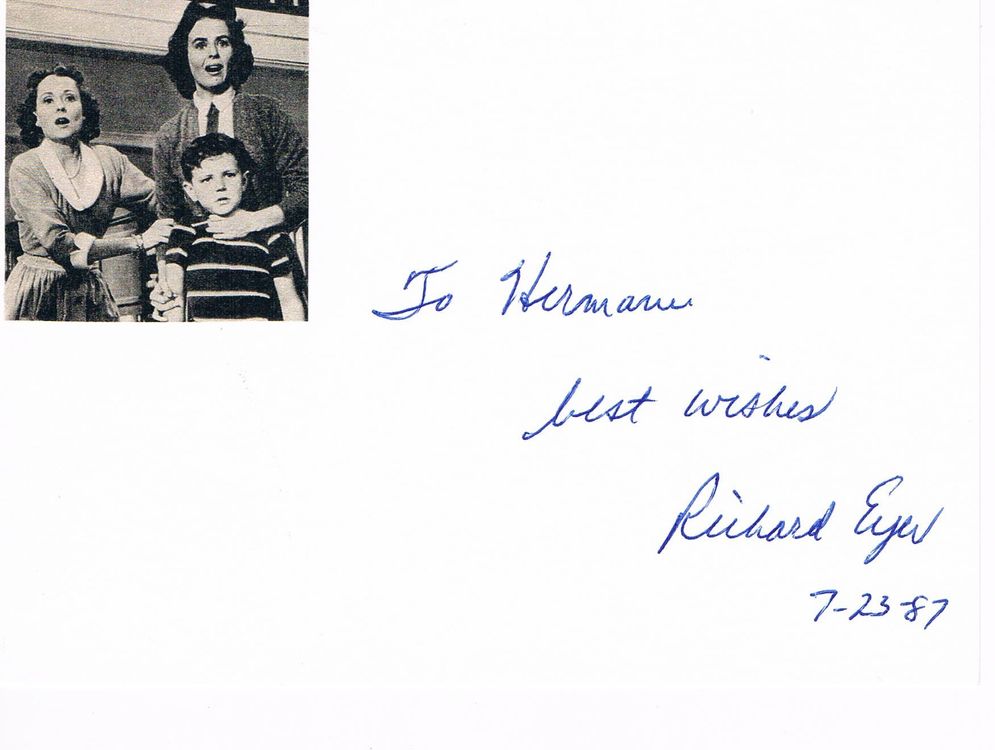 To Hermann
best wishes
Richard Eyer
7-23-87